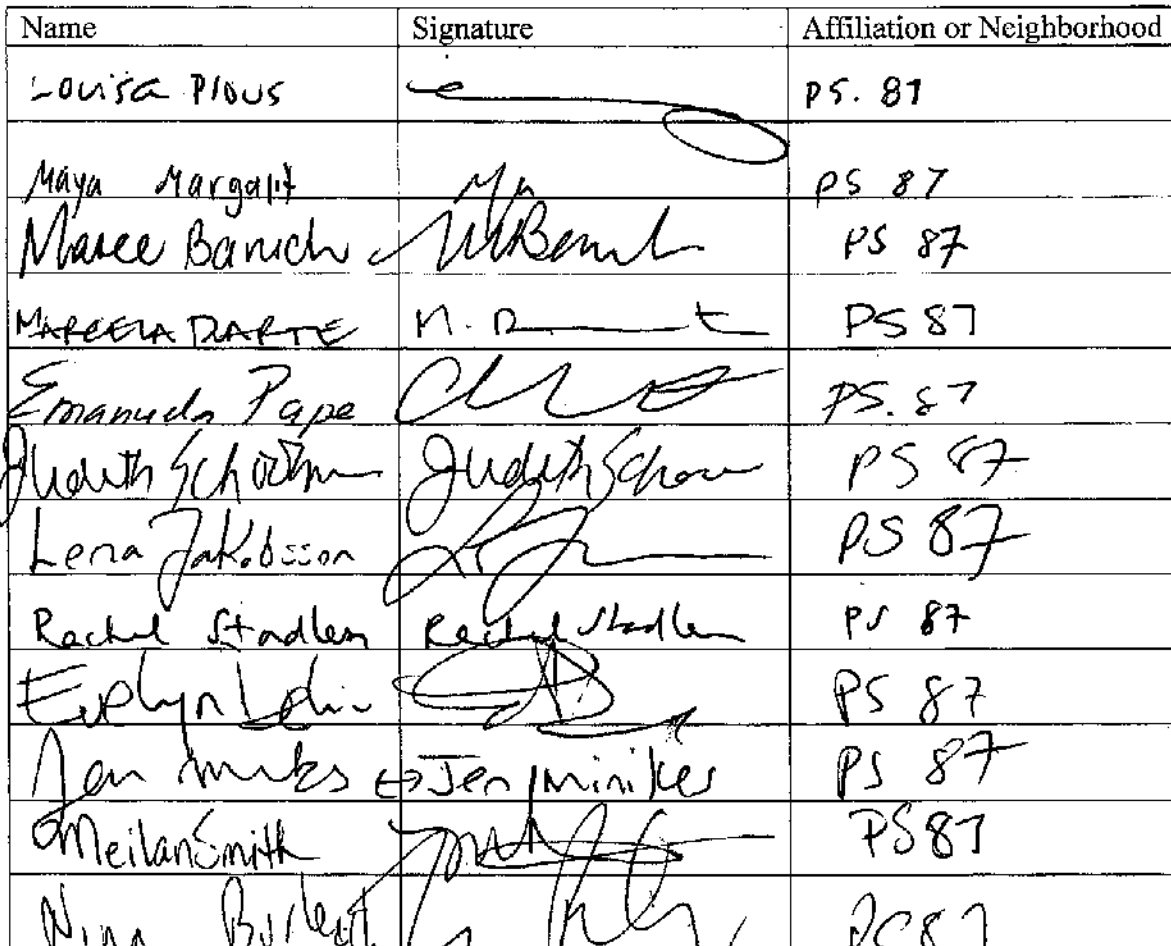 Name Signature Affiliation or Neighborhood
Louisa Pious PS. 87
Maya Margalit PS 87
Maree Banich PS 87
MARCELA DUARTE M. D PS 87
Emanuela Pape PS. 87
Judith Judith PS 87
Lena Jakobsson PS 87
Rachel Stadlen Rachel Stadlen PS 87
Evelyn PS 87
Jen Jen Minikes PS 87
Meilan Smith PS87
Nina PS87